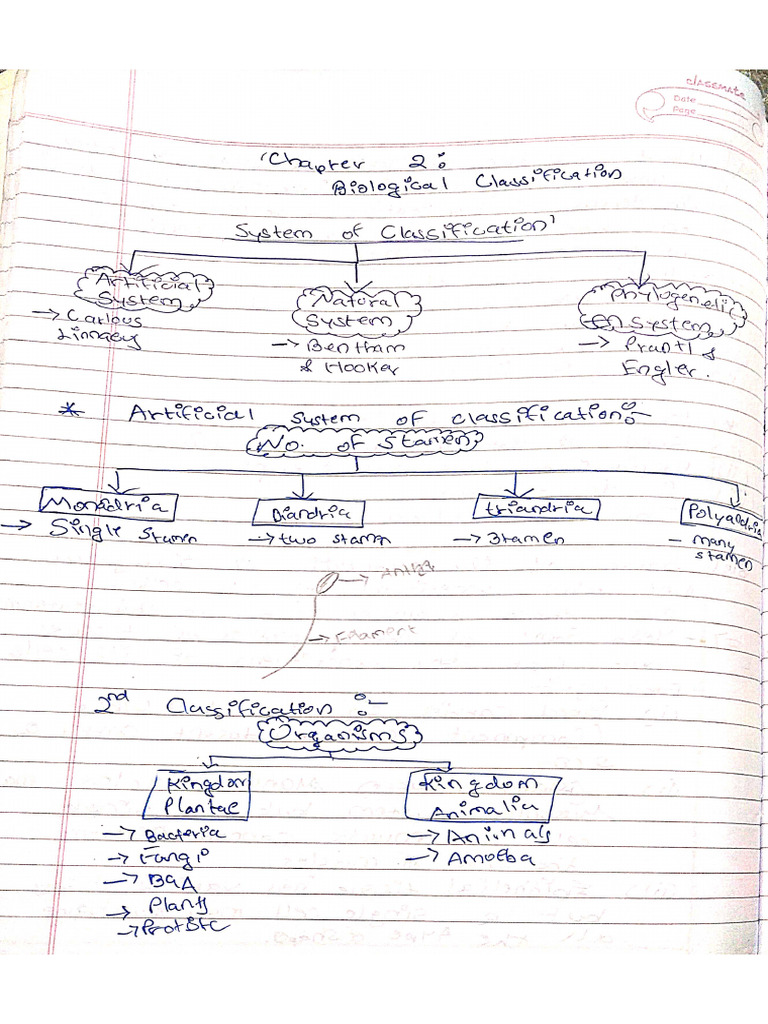 classmate
Date
Page
Chapter 2:
Biological Classification
System of Classification
Artificial
System
→ Carlous
Linnaeus
Natural
System
→ Bentham
& Hooker
Phylogenetic
System
→ Prantl &
Engler.
* Artificial System of classification:-
No. of Stamen
Monadria
→ Single Stamen
Diandria
→ two stamen
triandria
→ 3tamen
Polyandria
- many
stamen
→ Anther
→ Filament
2nd Classification :-
Organisms
Kingdom
Plantae
→ Bacteria
→ Fungi
→ BGA
→ Plants
Kingdom
Animalia
→ Animals
→ Amoeba